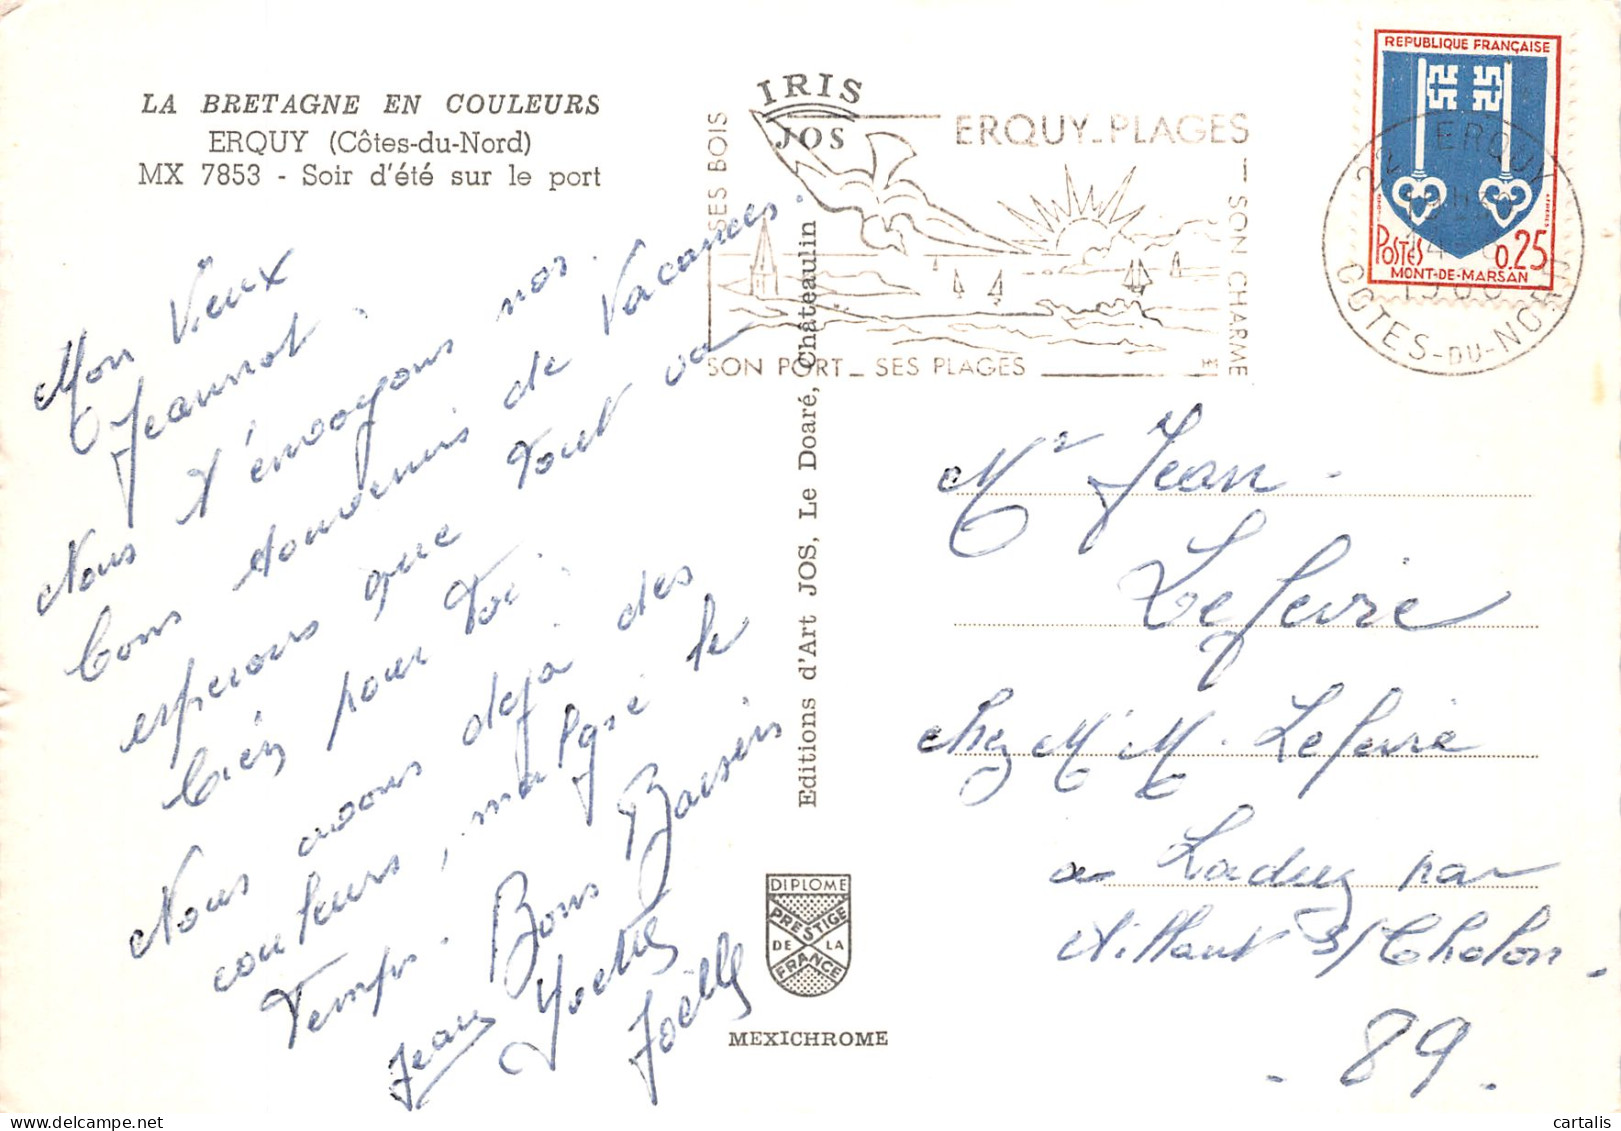 LA BRETAGNE EN COULEURS
ERQUY (Côtes-du-Nord)
MX 7853 - Soir d'été sur le port
Mon Vieux
Jeannot.
Nous t'envoyons nos
bons souvenirs de Vacances.
esperons que tout va
bien pour toi.
Nous avons deja des
couleurs, malgré le
temps. Bons Baisers
Jean Yvette
Joëlle
IRIS
JOS
ERQUY_PLAGES
SES BOIS
SON CHARME
SON PORT_ SES PLAGES
REPUBLIQUE FRANÇAISE
POSTES 0,25
MONT-DE-MARSAN
22 ERQUY
COTES-DU-NORD
Editions d'Art JOS, Le Doaré, Châteaulin
Mr Jean
Lefevre
chez Mr M. Lefevre
a Laduz par
Aillant s/ Tholon.
- 89 -
DIPLOME
PRESTIGE
DE LA
FRANCE
MEXICHROME
cartalis
delcampe.net